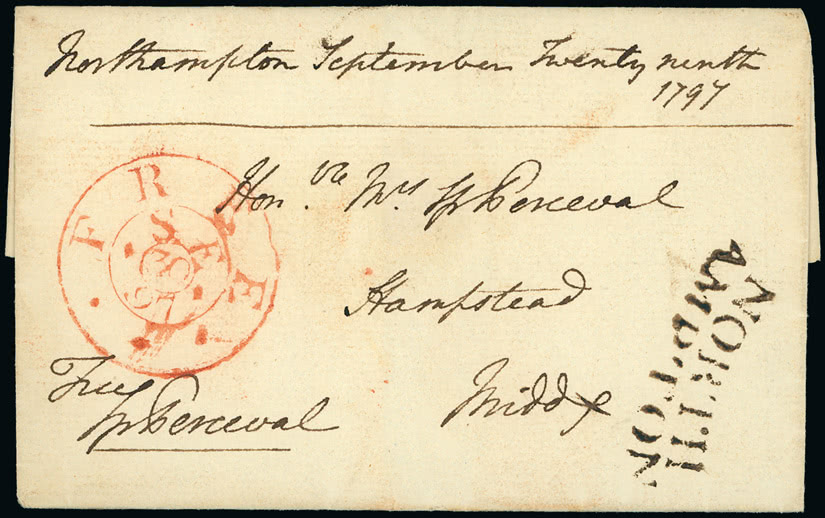 Northampton September Twenty ninth
1797
Hon.ble Mrs Sp Perceval
Hampstead
Middx
Free
Sp Perceval
FREE
SE
30
97
NORTH
AMPTON